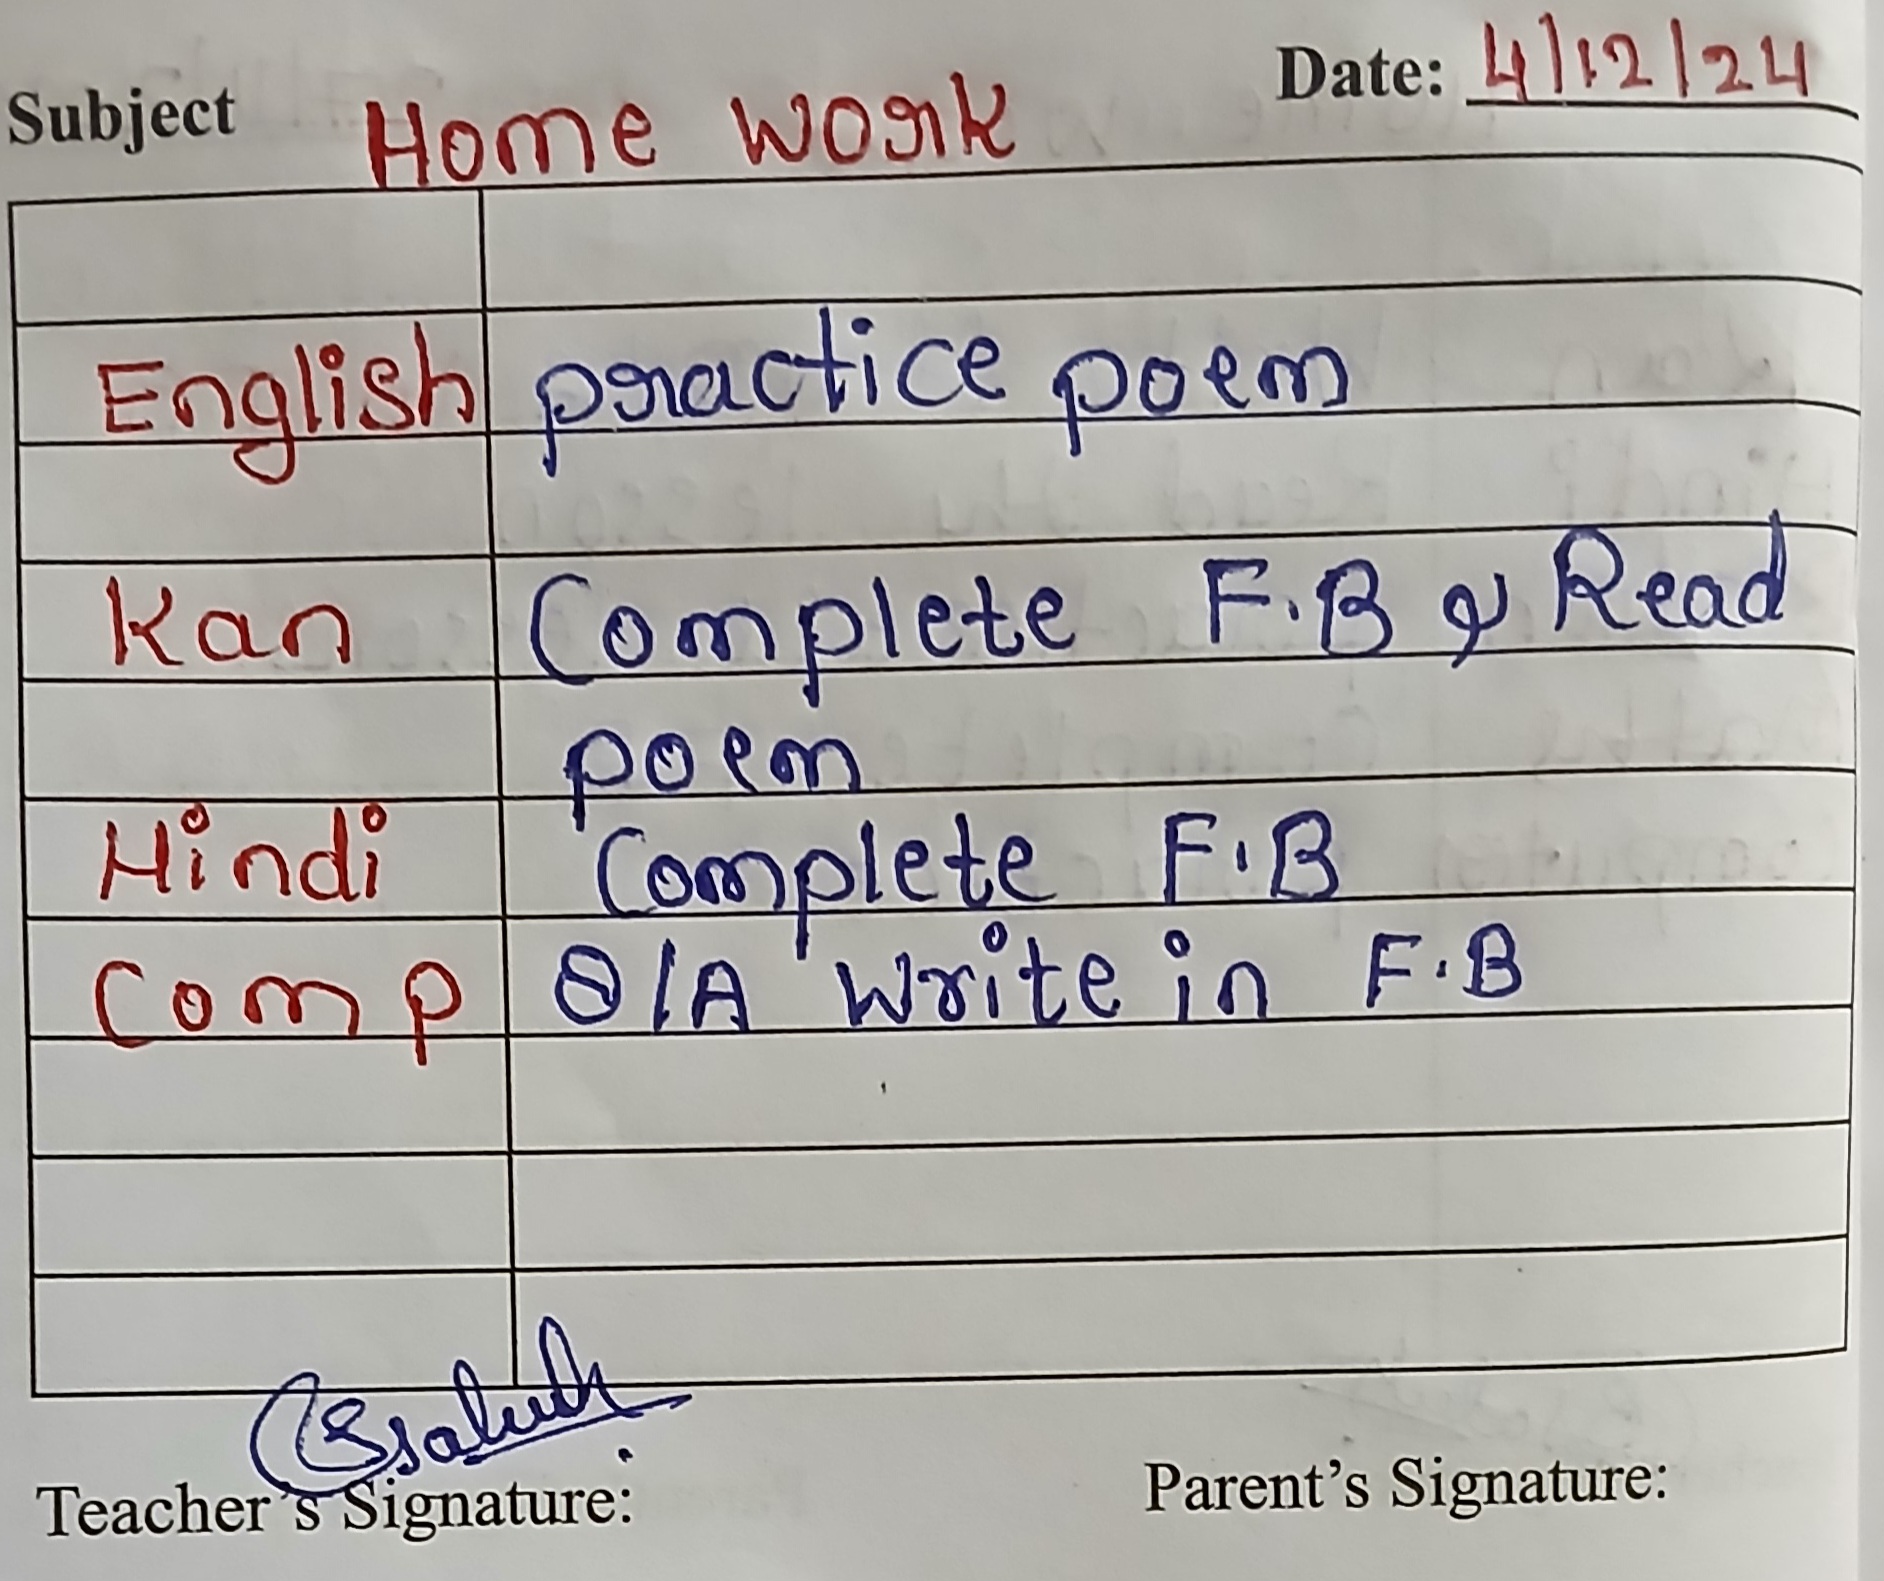 Subject Home work Date: 4/12/24
English practice poem
Kan Complete F.B & Read
poem
Hindi Complete F.B
Comp Q/A Write in F.B
Teacher's Signature: Parent's Signature: